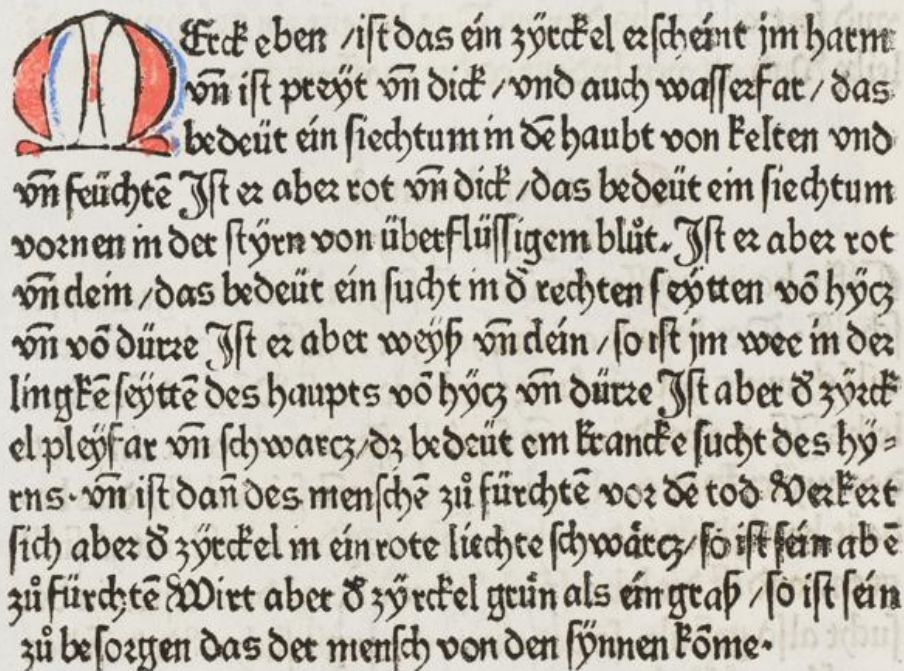 MErck eben /ist das ein zÿrckel erscheint jm harm
vn̄ ist preÿt vn̄ dick /vnd auch wasserfar / das
bedeüt ein siechtum in dē haubt von kelten vnd
vn̄ feüchtē Jst er aber rot vn̄ dick /das bedeüt ein siechtum
vornen in der stÿrn von überflüssigem blůt. Jst er aber rot
vn̄ dein /das bedeüt ein sucht in d̄ rechten seÿtten vō hÿcz
vn̄ vō dürre Jst er aber weÿß vn̄ dein /so ist jm wee in der
lingkē seÿttē des haupts vō hÿcz vn̄ dürre Jst aber d̄ zÿrck
el pleÿfar vn̄ schwarcz/dz bedeüt ein krancke sucht des hÿ⸗
rns. vn̄ ist dan̄ des menschē zů fürchtē vor dē tod Verkert
sich aber d̄ zÿrckel in ein rote liechte schwaͤrcz/so ist sein abē
zů fürchtē Wirt aber d̄ zÿrckel grůn als ein graß /so ist sein
zů besorgen das der mensch von den sÿnnen kōme.